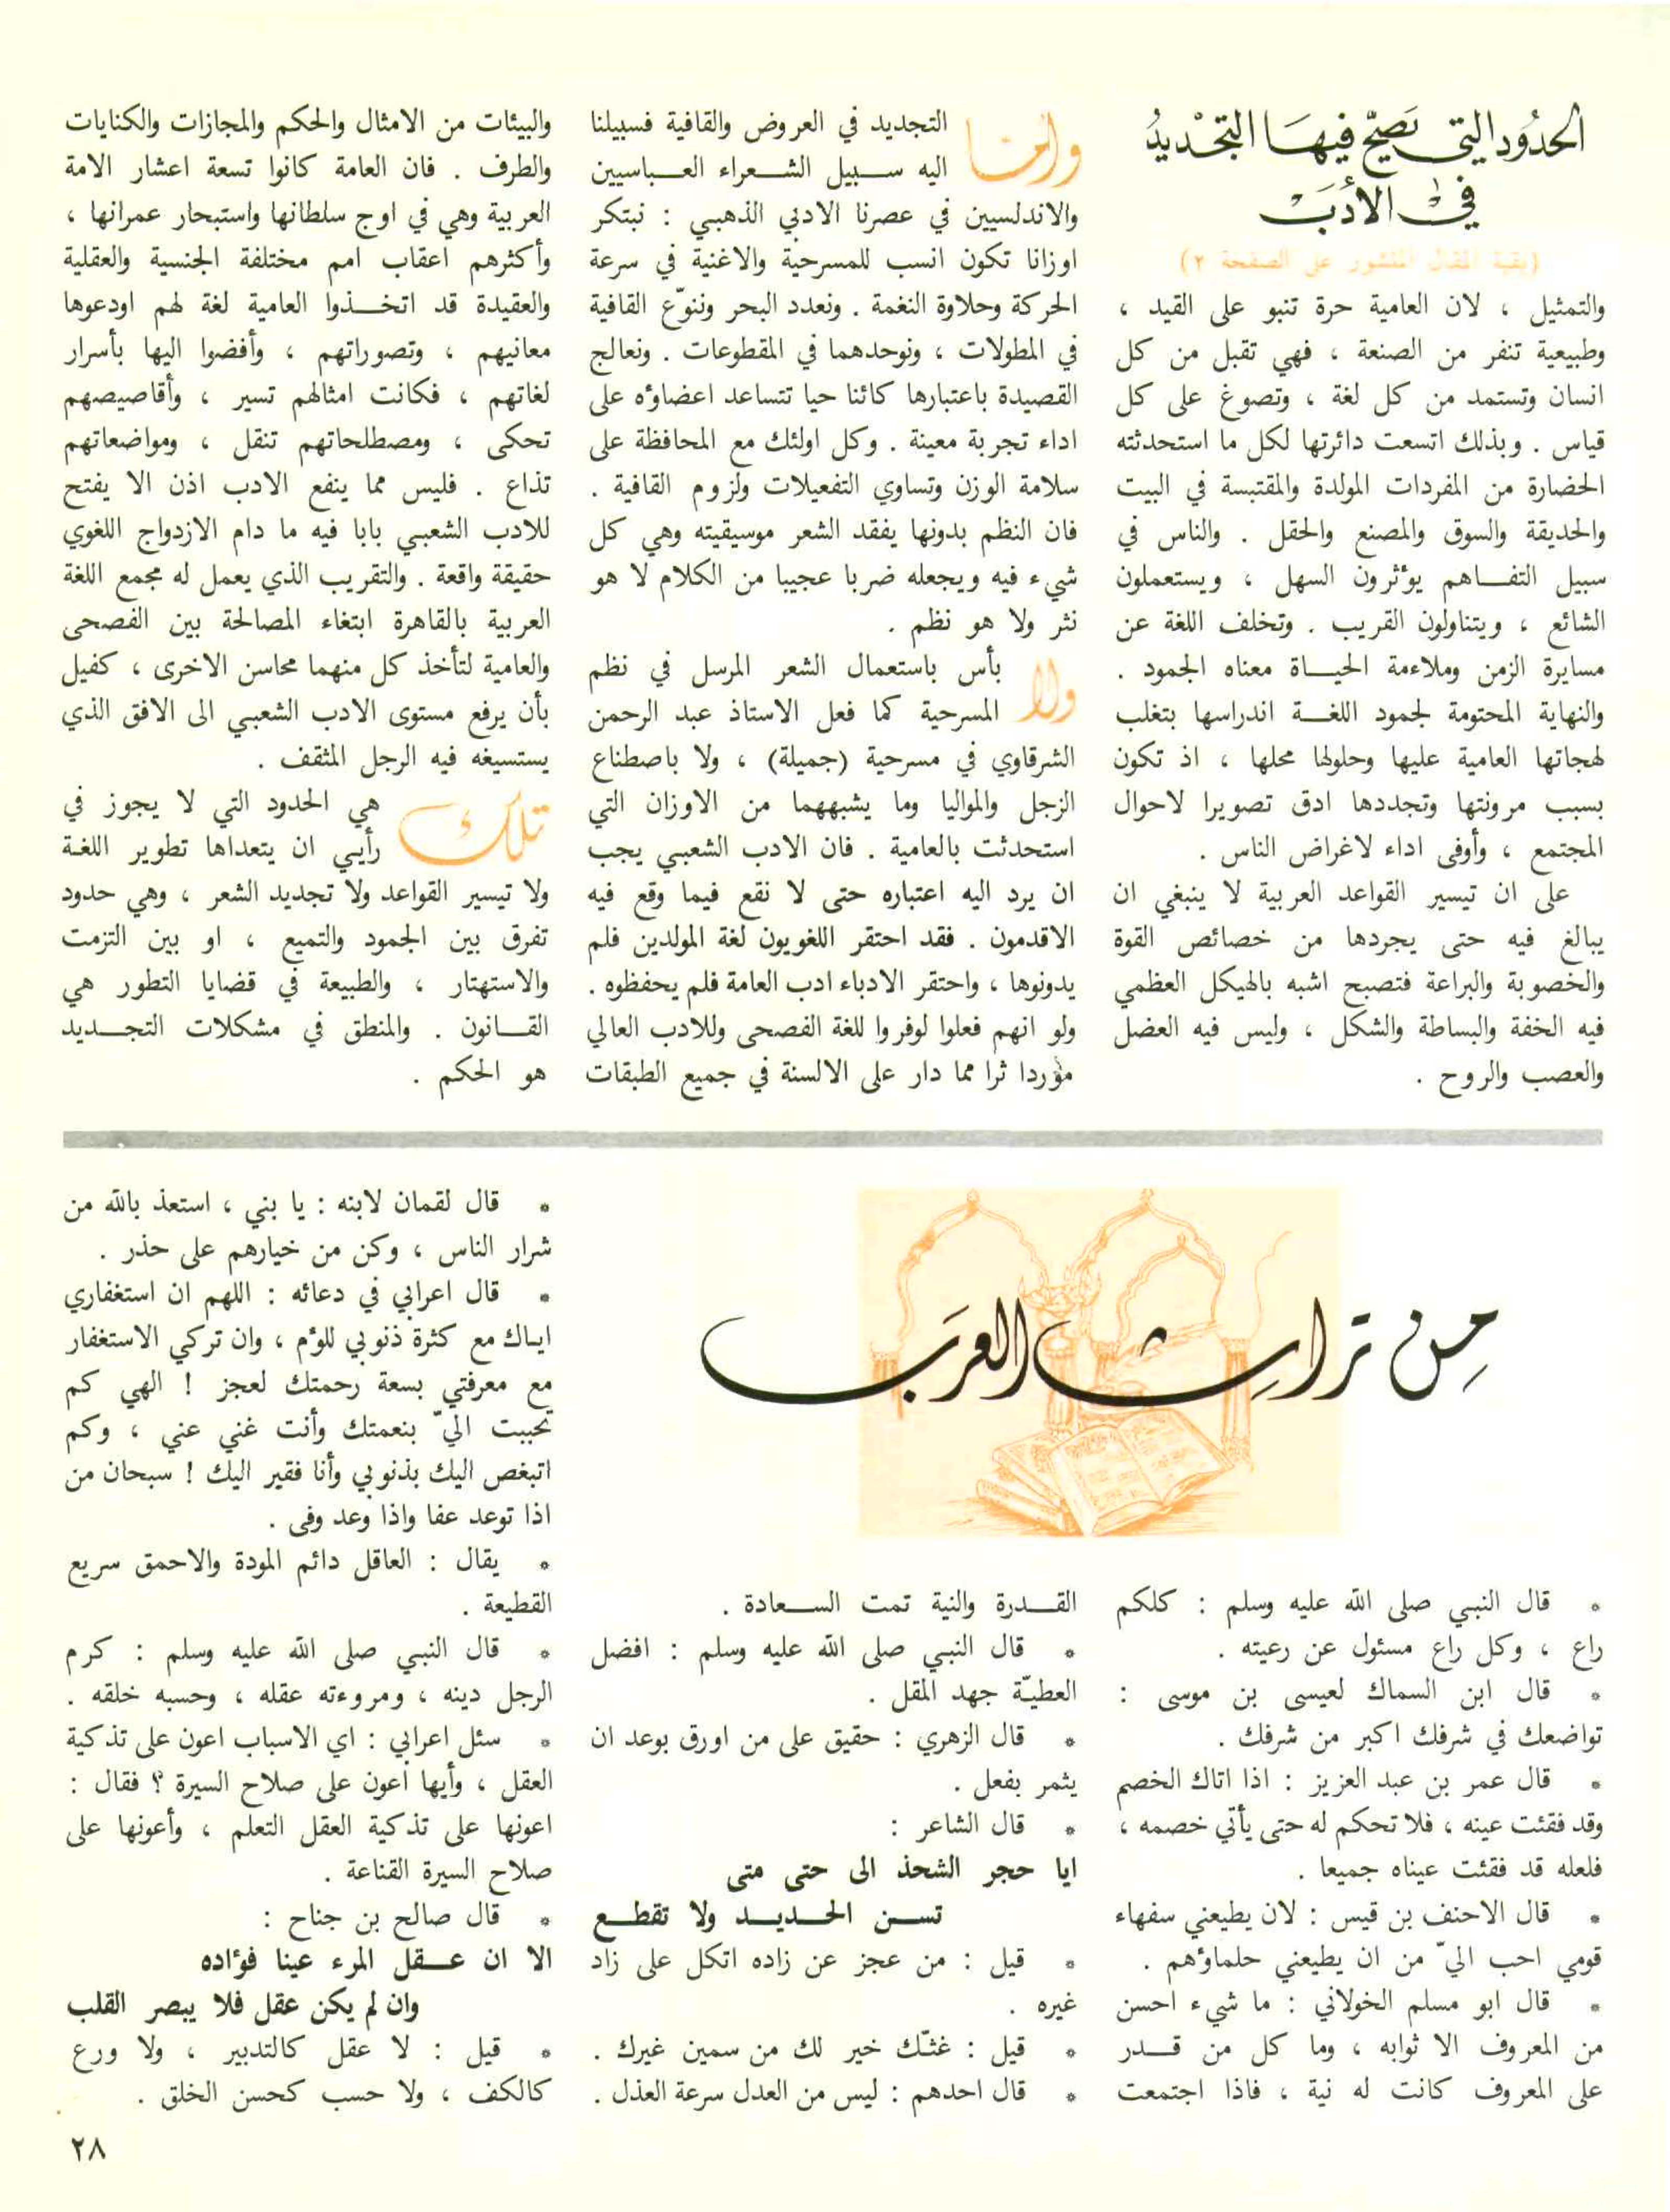 الحدُود التي تصحّ فيهَا التجْديدُ
في الأدَب
(بقية المقال المنشور على الصفحة ٢)
والتمثيل ، لان العامية حرة تنبو على القيد ،
وطبيعية تنفر من الصنعة ، فهي تقبل من كل
انسان وتستمد من كل لغة ، وتصوغ على كل
قياس . وبذلك اتسعت دائرتها لكل ما استحدثته
الحضارة من المفردات المولدة والمقتبسة في البيت
والحديقة والسوق والمصنع والحقل . والناس في
سبيل التفـاهم يؤثرون السهل ، ويستعملون
الشائع ، ويتناولون القريب . وتخلف اللغة عن
مسايرة الزمن وملاءمة الحيـاة معناه الجمود .
والنهاية المحتومة لجمود اللغـة اندراسها بتغلب
لهجاتها العامية عليها وحلولها محلها ، اذ تكون
بسبب مرونتها وتجددها ادق تصويرا لاحوال
المجتمع ، وأوفى اداء لاغراض الناس .
على ان تيسير القواعد العربية لا ينبغي ان
يبالغ فيه حتى يجردها من خصائص القوة
والخصوبة والبراعة فتصبح اشبه بالهيكل العظمي
فيه الخفة والبساطة والشكل ، وليس فيه العضل
والعصب والروح .
وامّا التجديد في العروض والقافية فسبيلنا
اليه سـبيل الشـعراء العـباسيين
والاندلسيين في عصرنا الادبي الذهبي : نبتكر
اوزانا تكون انسب للمسرحية والاغنية في سرعة
الحركة وحلاوة النغمة . ونعدد البحر وننوّع القافية
في المطولات ، ونوحدهما في المقطوعات . ونعالج
القصيدة باعتبارها كائنا حيا تتساعد اعضاؤه على
اداء تجربة معينة . وكل اولئك مع المحافظة على
سلامة الوزن وتساوي التفعيلات ولزوم القافية .
فان النظم بدونها يفقد الشعر موسيقيته وهي كل
شيء فيه ويجعله ضربا عجيبا من الكلام لا هو
نثر ولا هو نظم .
ولا بأس باستعمال الشعر المرسل في نظم
المسرحية كما فعل الاستاذ عبد الرحمن
الشرقاوي في مسرحية (جميلة) ، ولا باصطناع
الزجل والمواليا وما يشبههما من الاوزان التي
استحدثت بالعامية . فان الادب الشعبي يجب
ان يرد اليه اعتباره حتى لا نقع فيما وقع فيه
الاقدمون . فقد احتقر اللغويون لغة المولدين فلم
يدونوها ، واحتقر الادباء ادب العامة فلم يحفظوه .
ولو انهم فعلوا لوفروا للغة الفصحى وللادب العالي
موردا ثرا مما دار على الالسنة في جميع الطبقات
والبيئات من الامثال والحكم والمجازات والكنايات
والطرف . فان العامة كانوا تسعة اعشار الامة
العربية وهي في اوج سلطانها واستبحار عمرانها ،
وأكثرهم اعقاب امم مختلفة الجنسية والعقلية
والعقيدة قد اتخـذوا العامية لغة لهم اودعوها
معانيهم ، وتصوراتهم ، وأفضوا اليها بأسرار
لغاتهم ، فكانت امثالهم تسير ، وأقاصيصهم
تحكى ، ومصطلحاتهم تنقل ، ومواضعاتهم
تذاع . فليس مما ينفع الادب اذن الا يفتح
للادب الشعبي بابا فيه ما دام الازدواج اللغوي
حقيقة واقعة . والتقريب الذي يعمل له مجمع اللغة
العربية بالقاهرة ابتغاء المصالحة بين الفصحى
والعامية لتأخذ كل منهما محاسن الاخرى ، كفيل
بأن يرفع مستوى الادب الشعبي الى الافق الذي
يستسيغه فيه الرجل المثقف .
تلك هي الحدود التي لا يجوز في
رأيي ان يتعداها تطوير اللغة
ولا تيسير القواعد ولا تجديد الشعر ، وهي حدود
تفرق بين الجمود والتميع ، او بين التزمت
والاستهتار ، والطبيعة في قضايا التطور هي
القـانون . والمنطق في مشكلات التجـديد
هو الحكم .
مِن تراثِ العرَب
* قال النبي صلى الله عليه وسلم : كلكم
راع ، وكل راع مسئول عن رعيته .
* قال ابن السماك لعيسى بن موسى :
تواضعك في شرفك اكبر من شرفك .
* قال عمر بن عبد العزيز : اذا اتاك الخصم
وقد فقئت عينه ، فلا تحكم له حتى يأتي خصمه ،
فلعله قد فقئت عيناه جميعا .
* قال الاحنف بن قيس : لان يطيعني سفهاء
قومي احب اليّ من ان يطيعني حلماؤهم .
* قال ابو مسلم الخولاني : ما شيء احسن
من المعروف الا ثوابه ، وما كل من قـدر
على المعروف كانت له نية ، فاذا اجتمعت
القـدرة والنية تمت السـعادة .
* قال النبي صلى الله عليه وسلم : افضل
العطيّة جهد المقل .
* قال الزهري : حقيق على من اورق بوعد ان
يثمر بفعل .
* قال الشاعر :
ايا حجر الشحذ الى حتى متى
تسـن الحـديـد ولا تقطـع
* قيل : من عجز عن زاده اتكل على زاد
غيره .
* قيل : غثّك خير لك من سمين غيرك .
* قال احدهم : ليس من العدل سرعة العذل .
* قال لقمان لابنه : يا بني ، استعذ بالله من
شرار الناس ، وكن من خيارهم على حذر .
* قال اعرابي في دعائه : اللهم ان استغفاري
اياك مع كثرة ذنوبي للؤم ، وان تركي الاستغفار
مع معرفتي بسعة رحمتك لعجز ! الهي كم
تحببت اليّ بنعمتك وأنت غني عني ، وكم
اتبغص اليك بذنوبي وأنا فقير اليك ! سبحان من
اذا توعد عفا واذا وعد وفى .
* يقال : العاقل دائم المودة والاحمق سريع
القطيعة .
* قال النبي صلى الله عليه وسلم : كرم
الرجل دينه ، ومروءته عقله ، وحسبه خلقه .
* سئل اعرابي : اي الاسباب اعون على تذكية
العقل ، وأيها أعون على صلاح السيرة ؟ فقال :
اعونها على تذكية العقل التعلم ، وأعونها على
صلاح السيرة القناعة .
* قال صالح بن جناح :
الا ان عـقل المرء عينا فؤاده
وان لم يكن عقل فلا يبصر القلب
* قيل : لا عقل كالتدبير ، ولا ورع
كالكف ، ولا حسب كحسن الخلق .
٢٨